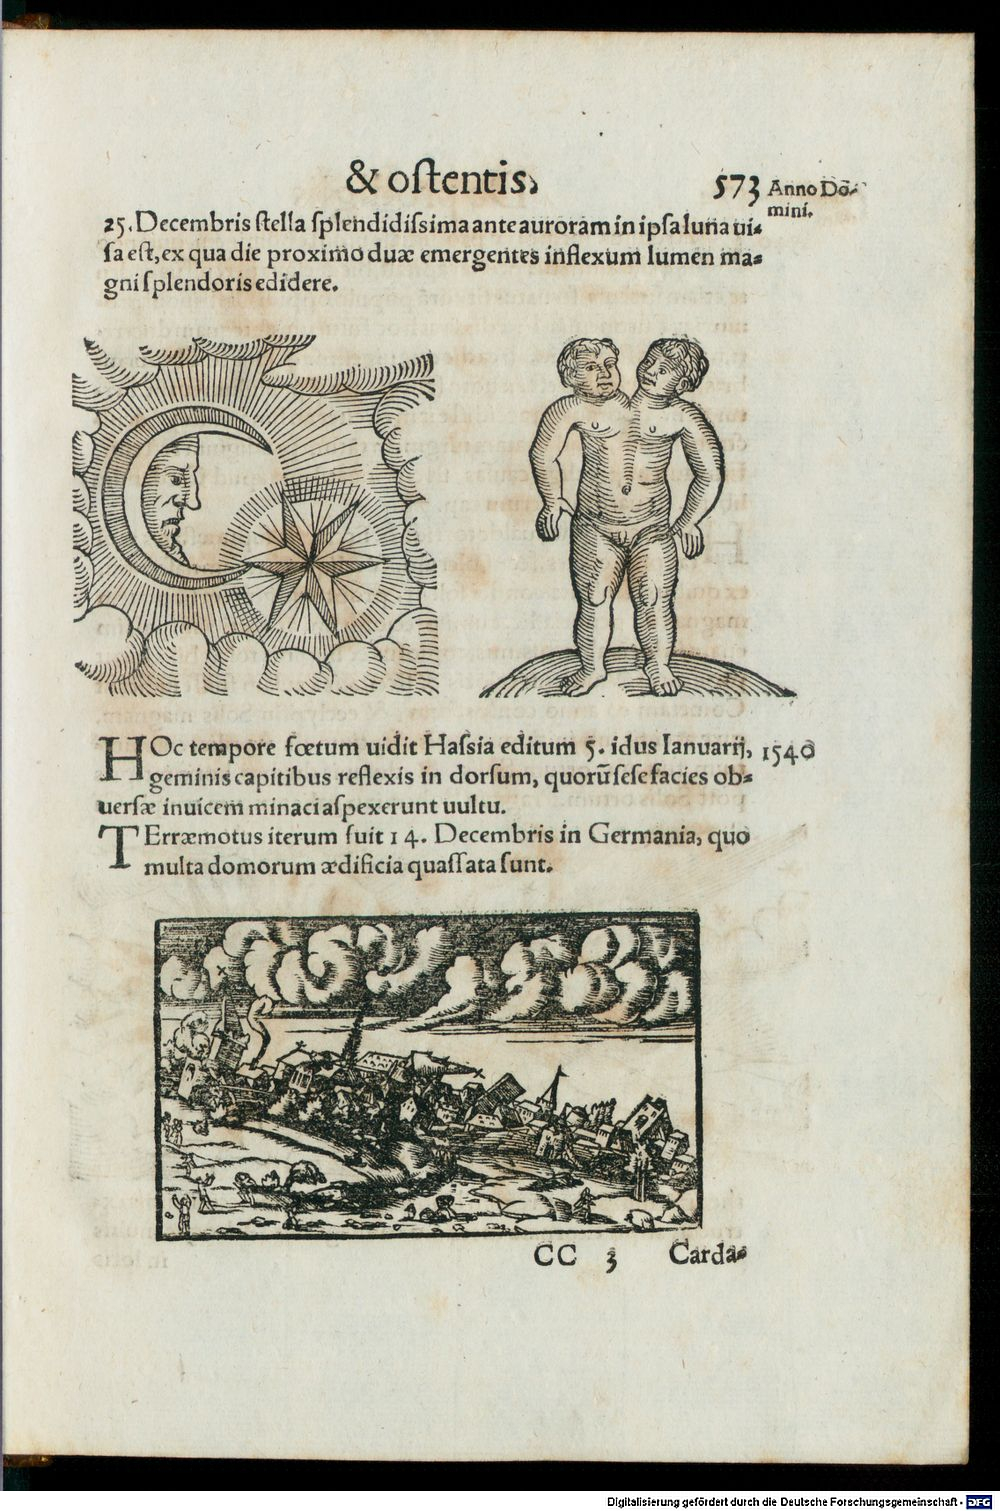 & oſtentis,
573 Anno Do⸗
mini.
25. Decembris ſtella ſplendidiſsima ante auroram in ipſa luna ui⸗
ſa eſt, ex qua die proximo duæ emergentes inflexum lumen ma⸗
gni ſplendoris edidere.
HOc tempore fœtum uidit Haſsia editum 5. idus Ianuarij, 1540
geminis capitibus reflexis in dorſum, quorū ſeſe facies ob⸗
uerſæ inuicem minaci aſpexerunt uultu.
TErræmotus iterum fuit 14. Decembris in Germania, quo
multa domorum ædificia quaſſata ſunt.
CC 3 Carda⸗
Digitalisierung gefördert durch die Deutsche Forschungsgemeinschaft - DFG